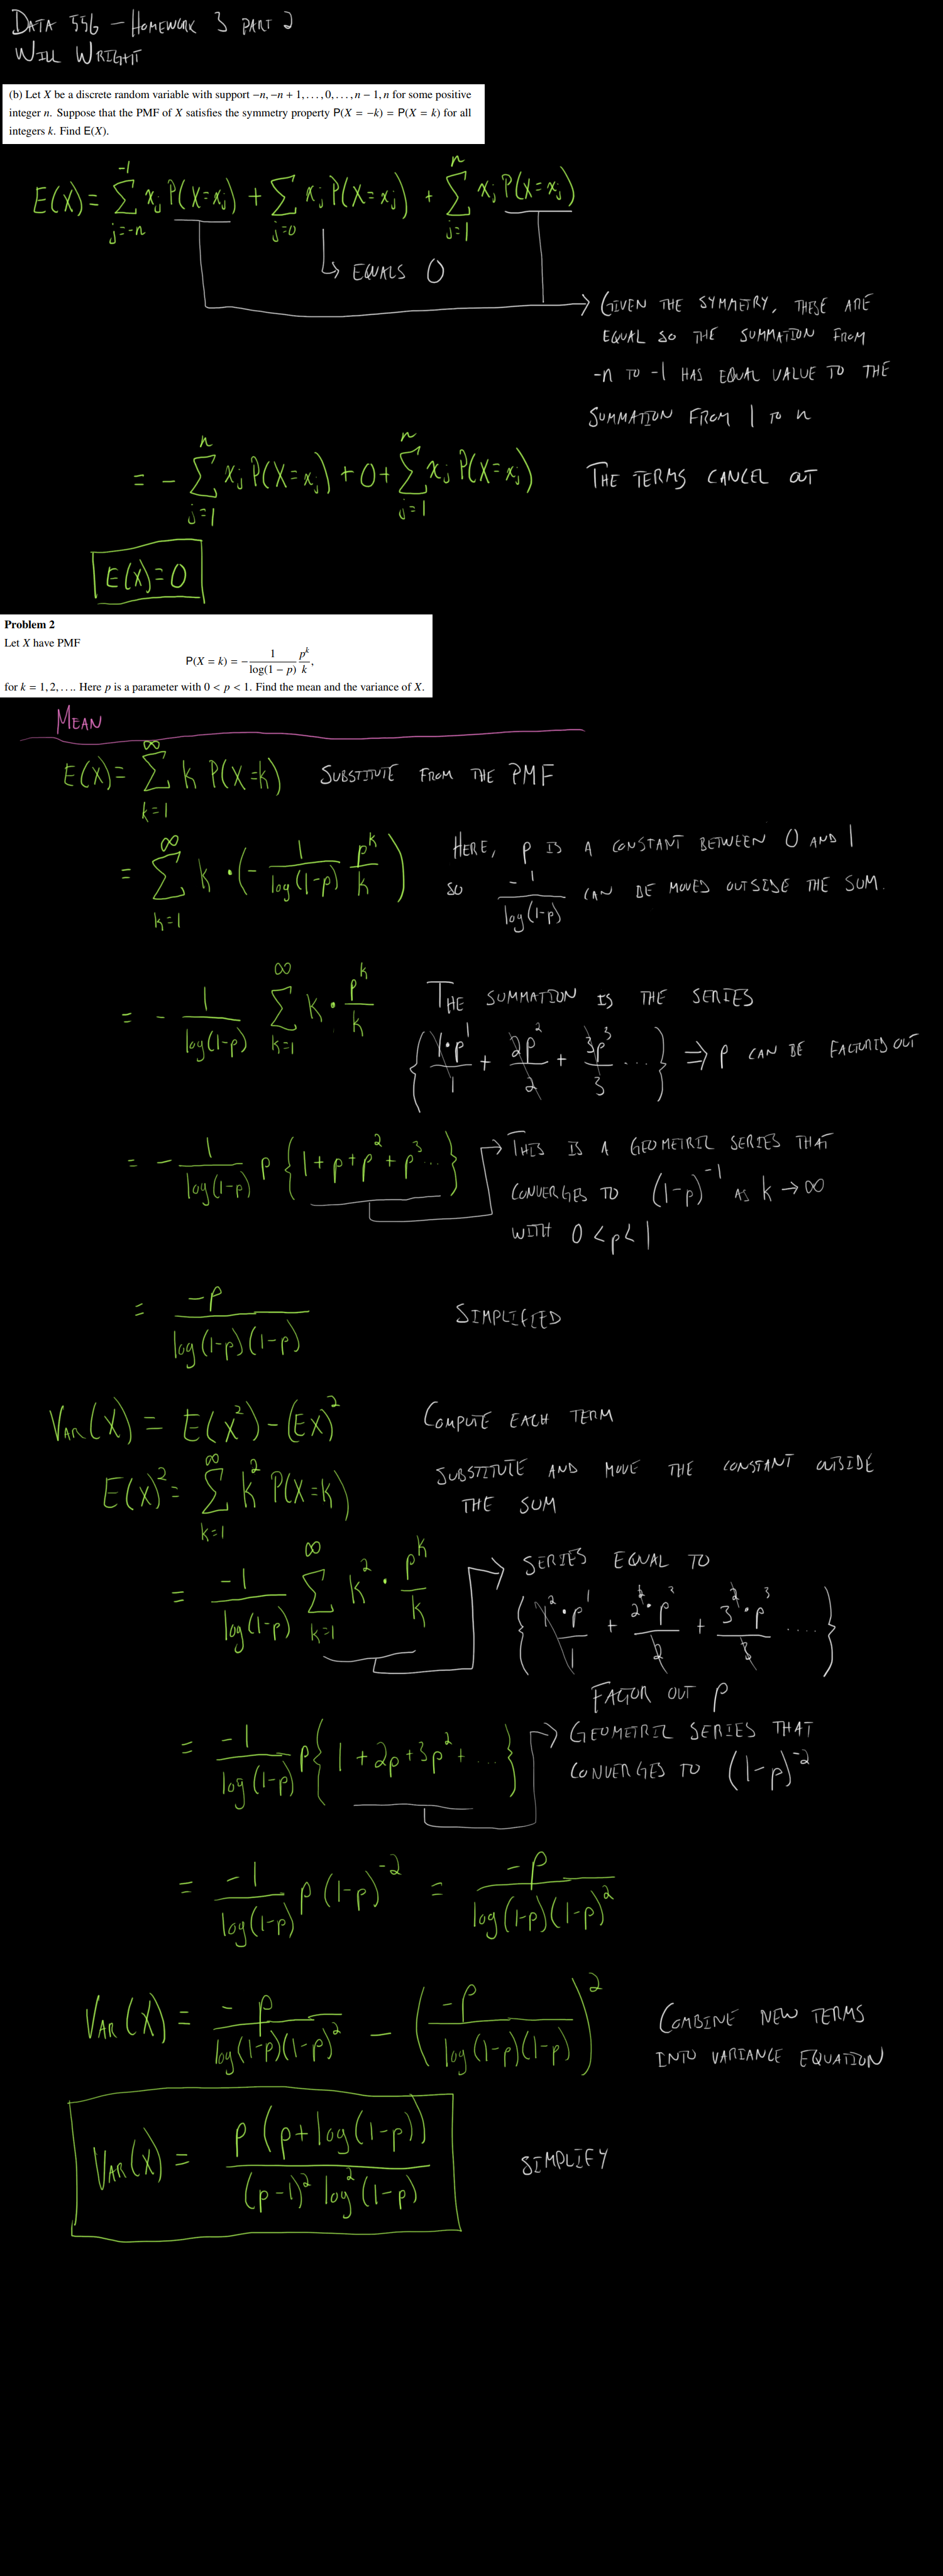 DATA 556 – HOMEWORK 3 PART 2
WILL WRIGHT
(b) Let X be a discrete random variable with support −n, −n + 1, . . . , 0, . . . , n − 1, n for some positive
integer n. Suppose that the PMF of X satisfies the symmetry property P(X = −k) = P(X = k) for all
integers k. Find E(X).
E(X) = ∑_{j=-n}^{-1} x_j P(X=x_j) + ∑_{j=0} x_j P(X=x_j) + ∑_{j=1}^{n} x_j P(X=x_j)
↳ EQUALS 0
→ GIVEN THE SYMMETRY, THESE ARE
EQUAL SO THE SUMMATION FROM
-n TO -1 HAS EQUAL VALUE TO THE
SUMMATION FROM 1 TO n
= - ∑_{j=1}^{n} x_j P(X=x_j) + 0 + ∑_{j=1}^{n} x_j P(X=x_j) THE TERMS CANCEL OUT
E(X) = 0
Problem 2
Let X have PMF
P(X = k) = − 1/log(1 − p) p^k/k,
for k = 1, 2, . . .. Here p is a parameter with 0 < p < 1. Find the mean and the variance of X.
MEAN
E(X) = ∑_{k=1}^{∞} k P(X=k) SUBSTITUTE FROM THE PMF
= ∑_{k=1}^{∞} k · (- 1/log(1-p) p^k/k) HERE, p IS A CONSTANT BETWEEN 0 AND 1
SO -1/log(1-p) CAN BE MOVED OUTSIDE THE SUM.
= - 1/log(1-p) ∑_{k=1}^{∞} k · p^k/k THE SUMMATION IS THE SERIES
{1·p^1/1 + 2p^2/2 + 3p^3/3 ...} ⇒ p CAN BE FACTORED OUT
= - 1/log(1-p) p {1 + p + p^2 + p^3 ...} → THIS IS A GEOMETRIC SERIES THAT
CONVERGES TO (1-p)^-1 AS k → ∞
WITH 0 < p < 1
= -p/log(1-p)(1-p) SIMPLIFIED
VAR(X) = E(X^2) - (EX)^2 COMPUTE EACH TERM
E(X)^2 = ∑_{k=1}^{∞} k^2 P(X=k) SUBSTITUTE AND MOVE THE CONSTANT OUTSIDE
THE SUM
= -1/log(1-p) ∑_{k=1}^{∞} k^2 · p^k/k → SERIES EQUAL TO
{1^2·p^1/1 + 2^2·p^2/2 + 3^2·p^3/3 ....}
FACTOR OUT p
= -1/log(1-p) p {1 + 2p + 3p^2 + ...} → GEOMETRIC SERIES THAT
CONVERGES TO (1-p)^-2
= -1/log(1-p) p (1-p)^-2 = -p/log(1-p)(1-p)^2
VAR(X) = -p/log(1-p)(1-p)^2 - (-p/log(1-p)(1-p))^2 COMBINE NEW TERMS
INTO VARIANCE EQUATION
VAR(X) = p(p+log(1-p))/(p-1)^2 log^2(1-p) SIMPLIFY